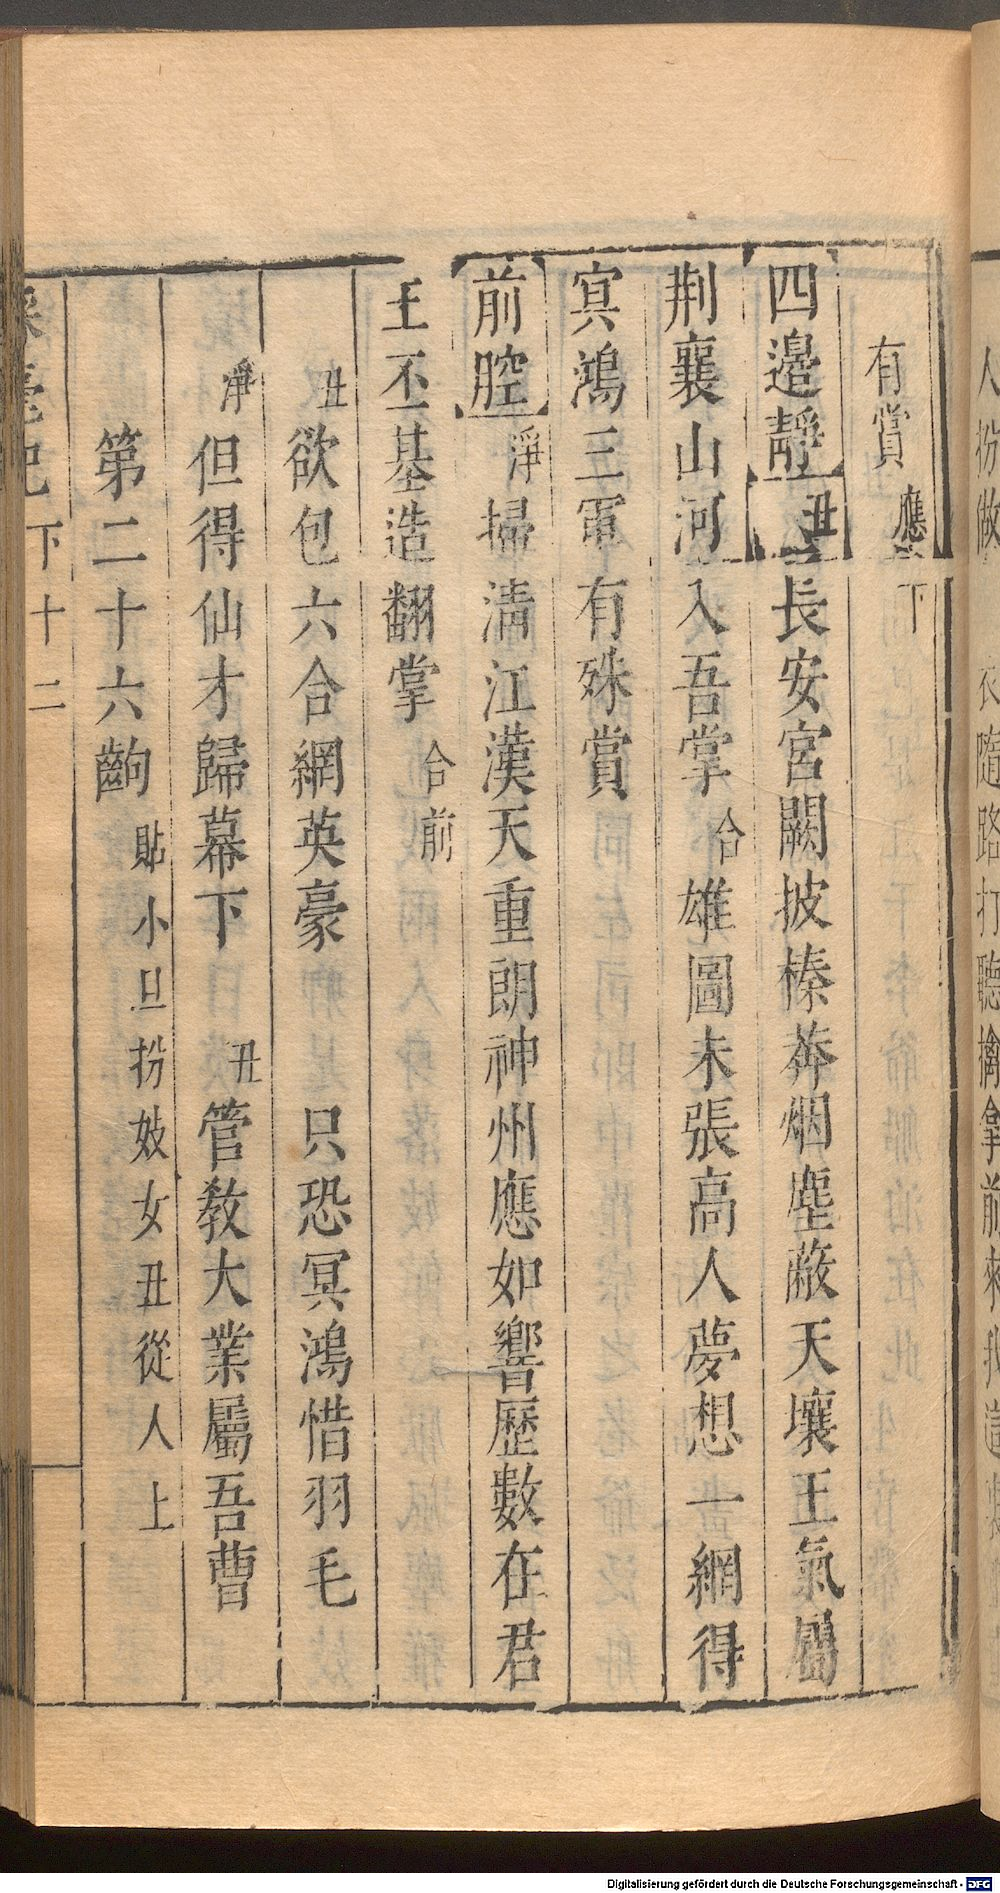 有賞應下
四邊靜丑長安宮闕披榛莽烟塵蔽天壤王氣屬
荆襄山河入吾掌合雄圖未張高人夢想一網得
㝠鴻三軍有殊賞
前腔淨掃淸江漢天重朗神州應如響歷數在君
王丕基造翻掌合前
丑欲包六合網英豪 只恐冥鴻惜羽毛
淨但得仙才歸幕下 丑管教大業屬吾曹
第二十六齣貼小旦扮妓女丑從人上
彩毫記下十二
人扮做
隨路打聽擒拿前來
Digitalisierung gefördert durch die Deutsche Forschungsgemeinschaft - DFG